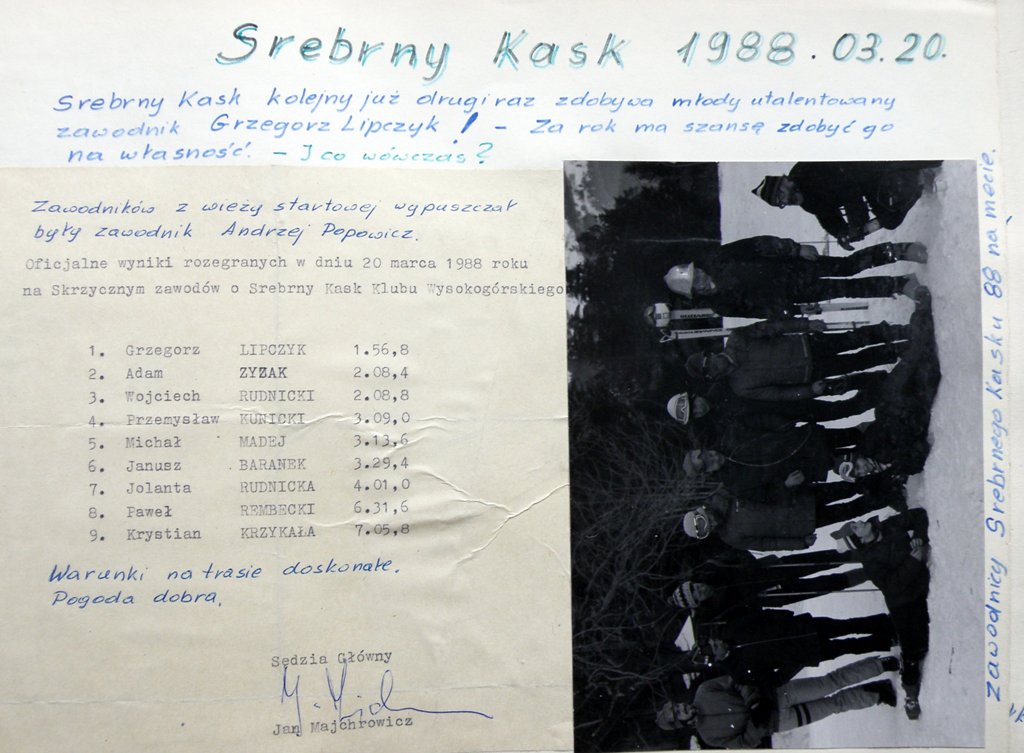 Srebrny Kask 1988.03.20.
Srebrny Kask kolejny już drugi raz zdobywa młody utalentowany
zawodnik Grzegorz Lipczyk! - Za rok ma szansę zdobyć go
na własność. - I co wówczas?
Zawodników z wieży startowej wypuszczał
były zawodnik Andrzej Popowicz.
Oficjalne wyniki rozegranych w dniu 20 marca 1988 roku
na Skrzycznym zawodów o Srebrny Kask Klubu Wysokogórskiego
1. Grzegorz LIPCZYK 1.56,8
2. Adam ZYZAK 2.08,4
3. Wojciech RUDNICKI 2.08,8
4. Przemysław KUNICKI 3.09,0
5. Michał MADEJ 3.13,6
6. Janusz BARANEK 3.29,4
7. Jolanta RUDNICKA 4.01,0
8. Paweł REMBECKI 6.31,6
9. Krystian KRZYKAŁA 7.05,8
Warunki na trasie doskonałe.
Pogoda dobra,
Sędzia Główny
Jan Majchrowicz
zawodnicy Srebrnego Kasku 88 na mecie.